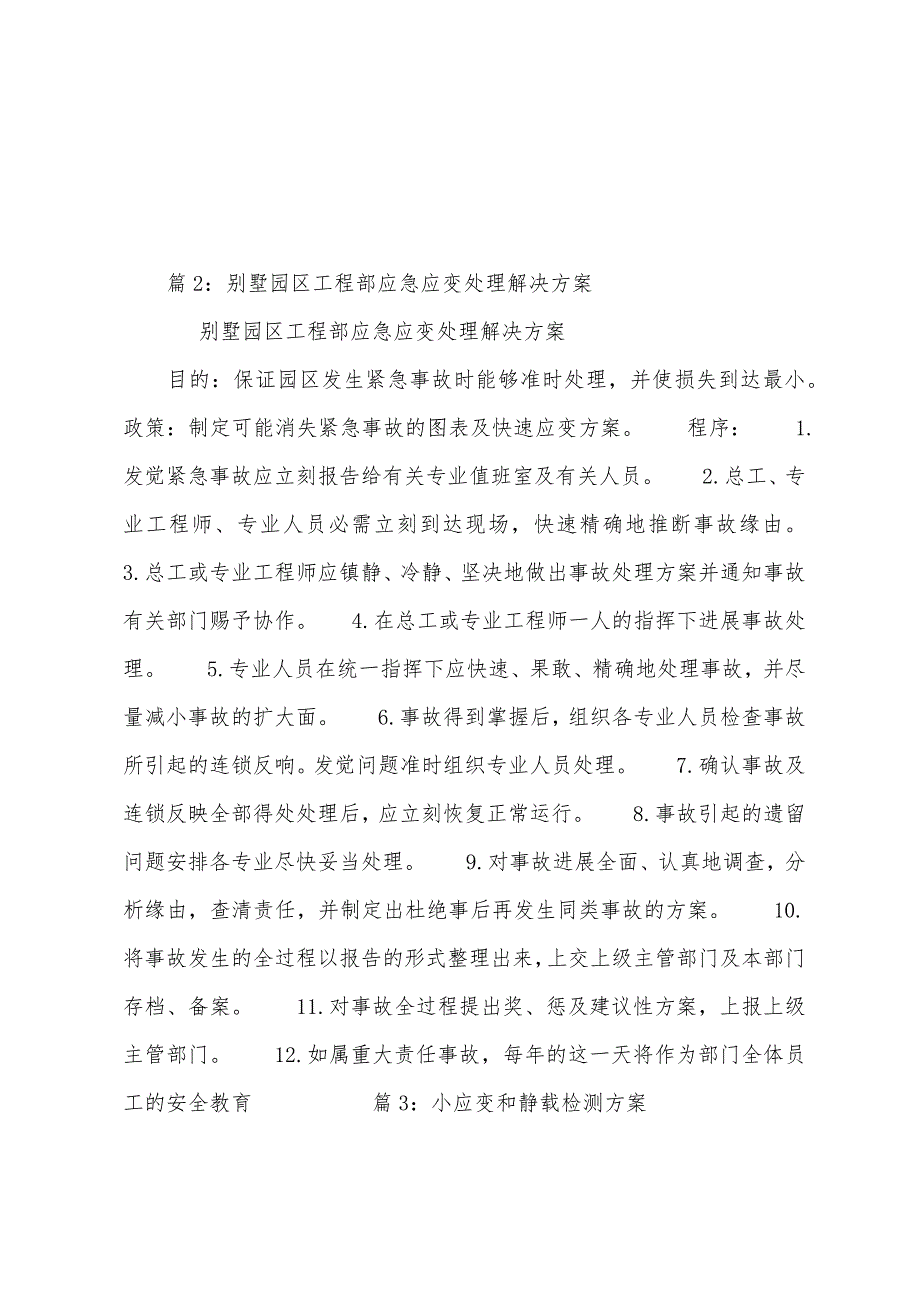 篇2：别墅园区工程部应急应变处理解决方案
别墅园区工程部应急应变处理解决方案
目的：保证园区发生紧急事故时能够准时处理，并使损失到达最小。
政策：制定可能消失紧急事故的图表及快速应变方案。 程序： 1.
发觉紧急事故应立刻报告给有关专业值班室及有关人员。 2.总工、专
业工程师、专业人员必需立刻到达现场，快速精确地推断事故缘由。
3.总工或专业工程师应镇静、冷静、坚决地做出事故处理方案并通知事故
有关部门赐予协作。 4.在总工或专业工程师一人的指挥下进展事故处
理。 5.专业人员在统一指挥下应快速、果敢、精确地处理事故，并尽
量减小事故的扩大面。 6.事故得到掌握后，组织各专业人员检查事故
所引起的连锁反响。发觉问题准时组织专业人员处理。 7.确认事故及
连锁反映全部得处处理后，应立刻恢复正常运行。 8.事故引起的遗留
问题安排各专业尽快妥当处理。 9.对事故进展全面、认真地调查，分
析缘由，查清责任，并制定出杜绝事后再发生同类事故的方案。 10.
将事故发生的全过程以报告的形式整理出来，上交上级主管部门及本部门
存档、备案。 11.对事故全过程提出奖、惩及建议性方案，上报上级
主管部门。 12.如属重大责任事故，每年的这一天将作为部门全体员
工的安全教育 篇3：小应变和静载检测方案